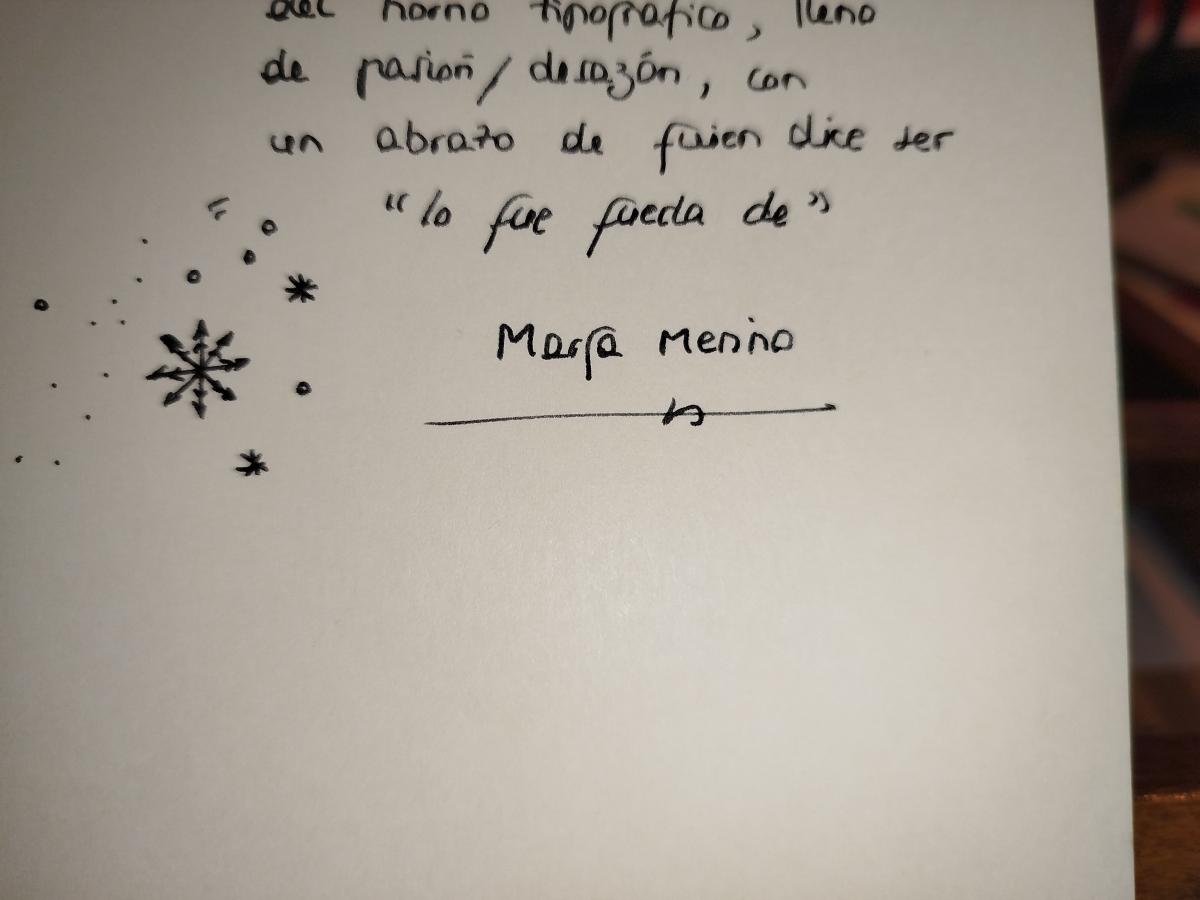 del horno tipográfico, lleno
de pasión/desazón, con
un abrazo de quien dice ser
"lo que queda de"
Marga Merino